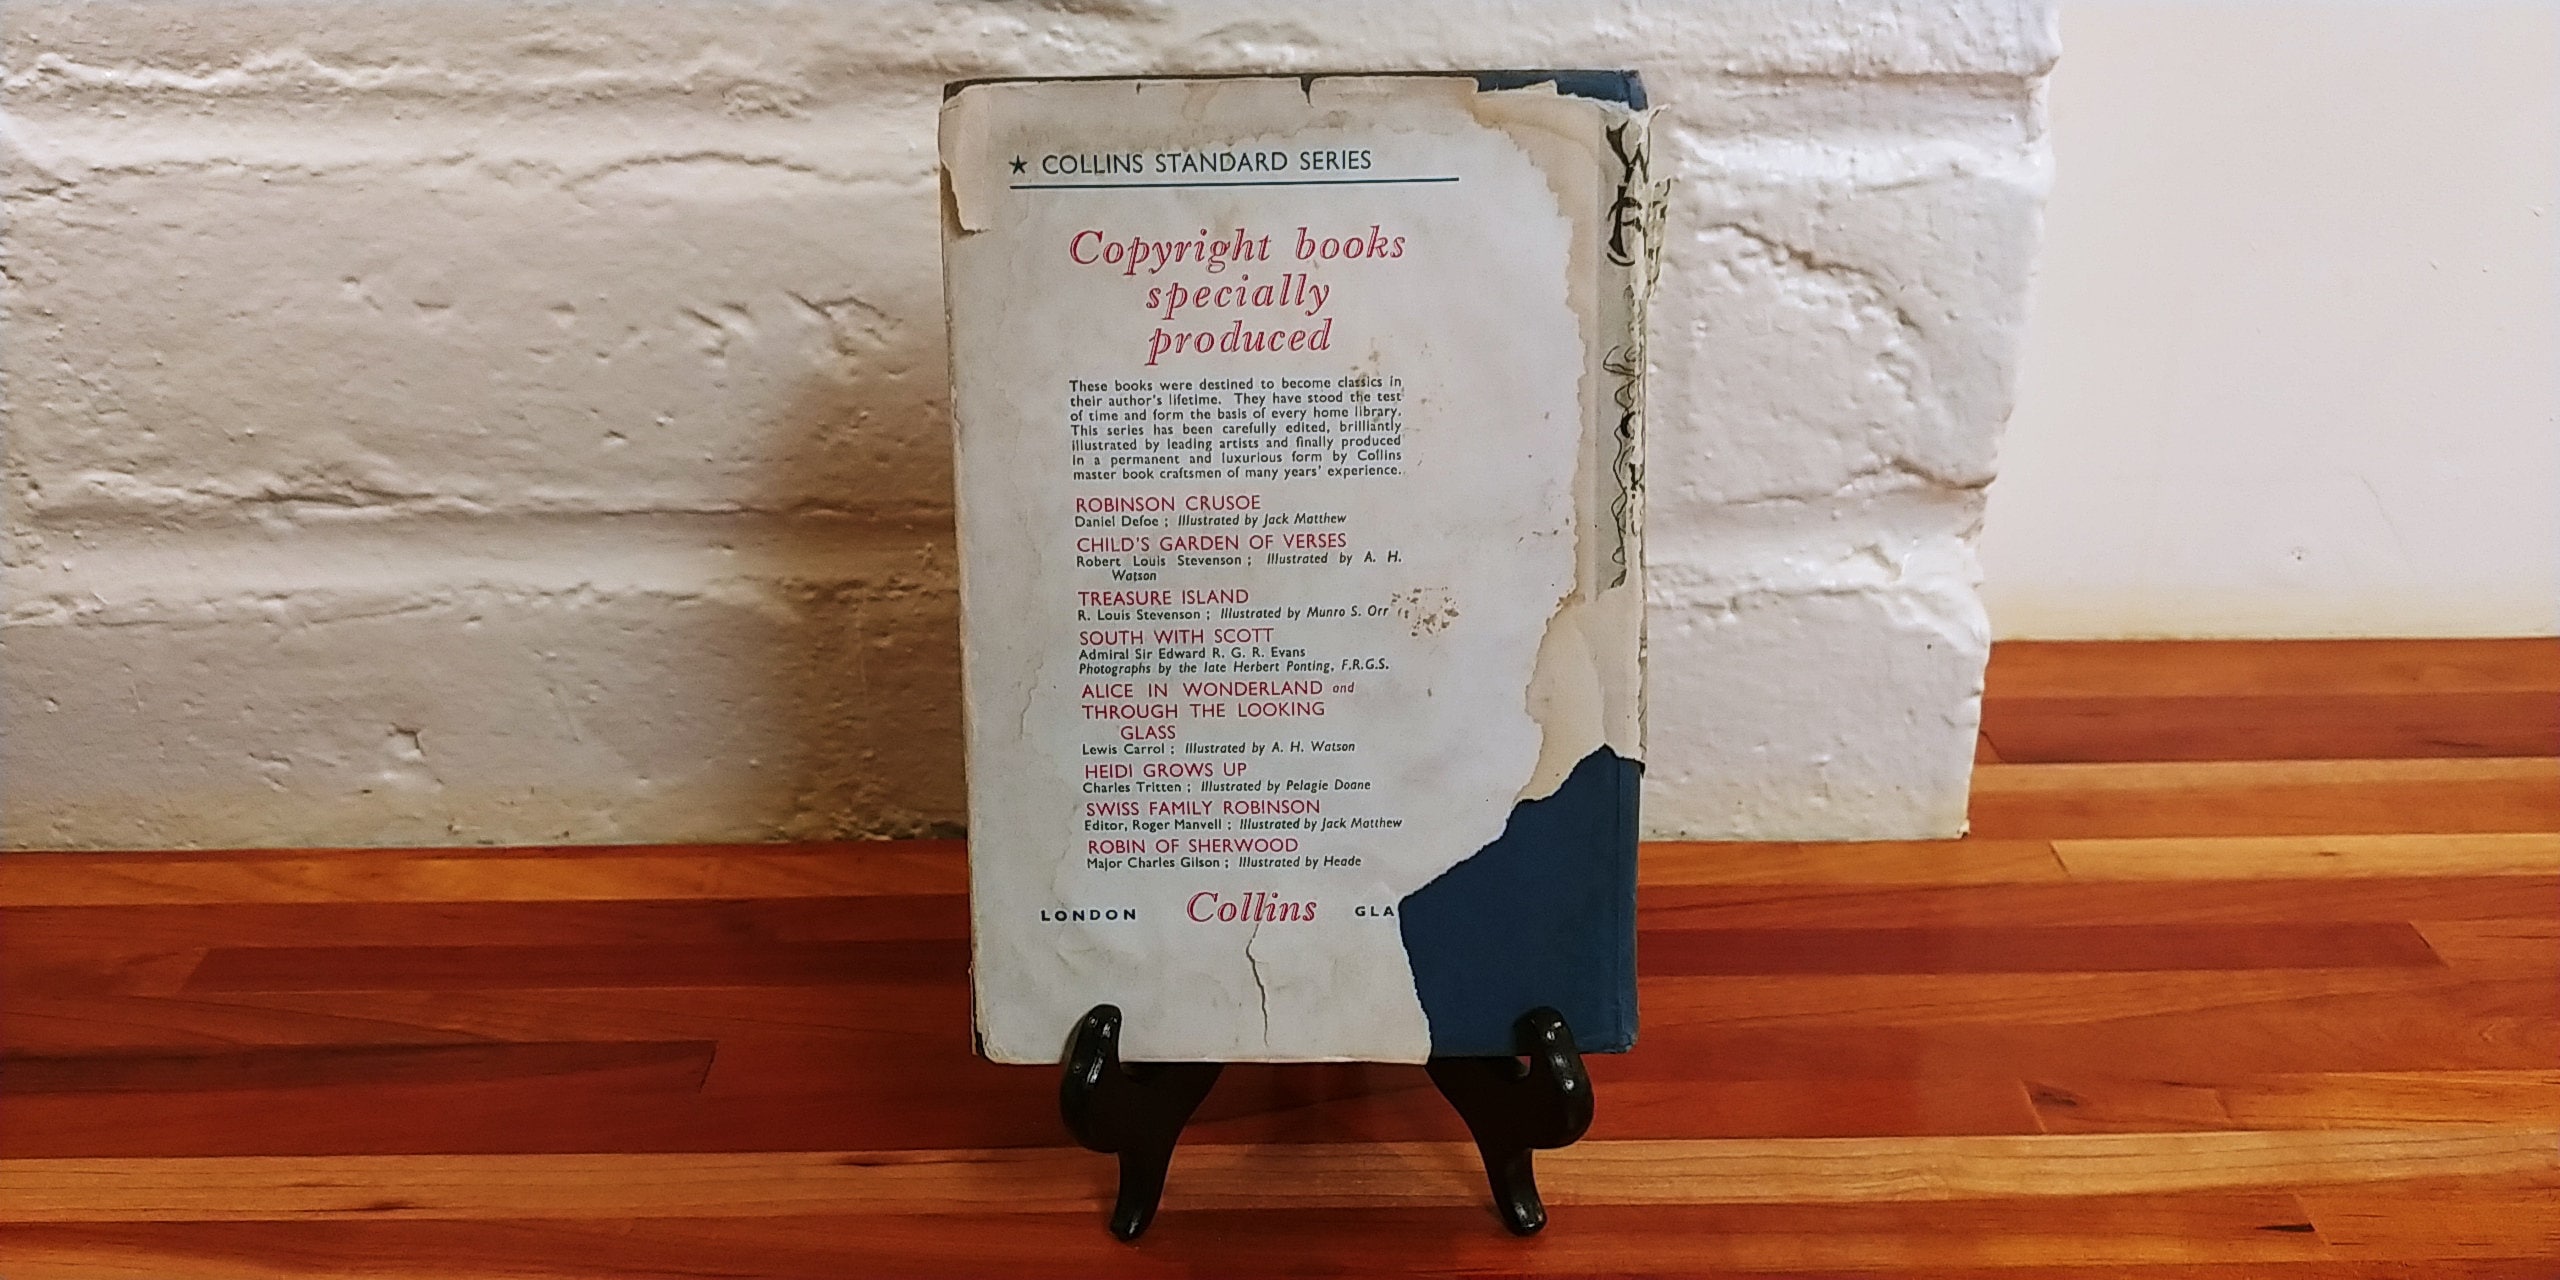 ★ COLLINS STANDARD SERIES
Copyright books
specially
produced
These books were destined to become classics in
their author's lifetime. They have stood the test
of time and form the basis of every home library.
This series has been carefully edited, brilliantly
illustrated by leading artists and finally produced
in a permanent and luxurious form by Collins
master book craftsmen of many years' experience.
ROBINSON CRUSOE
Daniel Defoe ; Illustrated by Jack Matthew
CHILD'S GARDEN OF VERSES
Robert Louis Stevenson ; Illustrated by A. H.
Watson
TREASURE ISLAND
R. Louis Stevenson ; Illustrated by Munro S. Orr
SOUTH WITH SCOTT
Admiral Sir Edward R. G. R. Evans
Photographs by the late Herbert Ponting, F.R.G.S.
ALICE IN WONDERLAND and
THROUGH THE LOOKING
GLASS
Lewis Carrol ; Illustrated by A. H. Watson
HEIDI GROWS UP
Charles Tritten ; Illustrated by Pelagie Doane
SWISS FAMILY ROBINSON
Editor, Roger Manvell ; Illustrated by Jack Matthew
ROBIN OF SHERWOOD
Major Charles Gilson ; Illustrated by Heade
LONDON Collins GLA